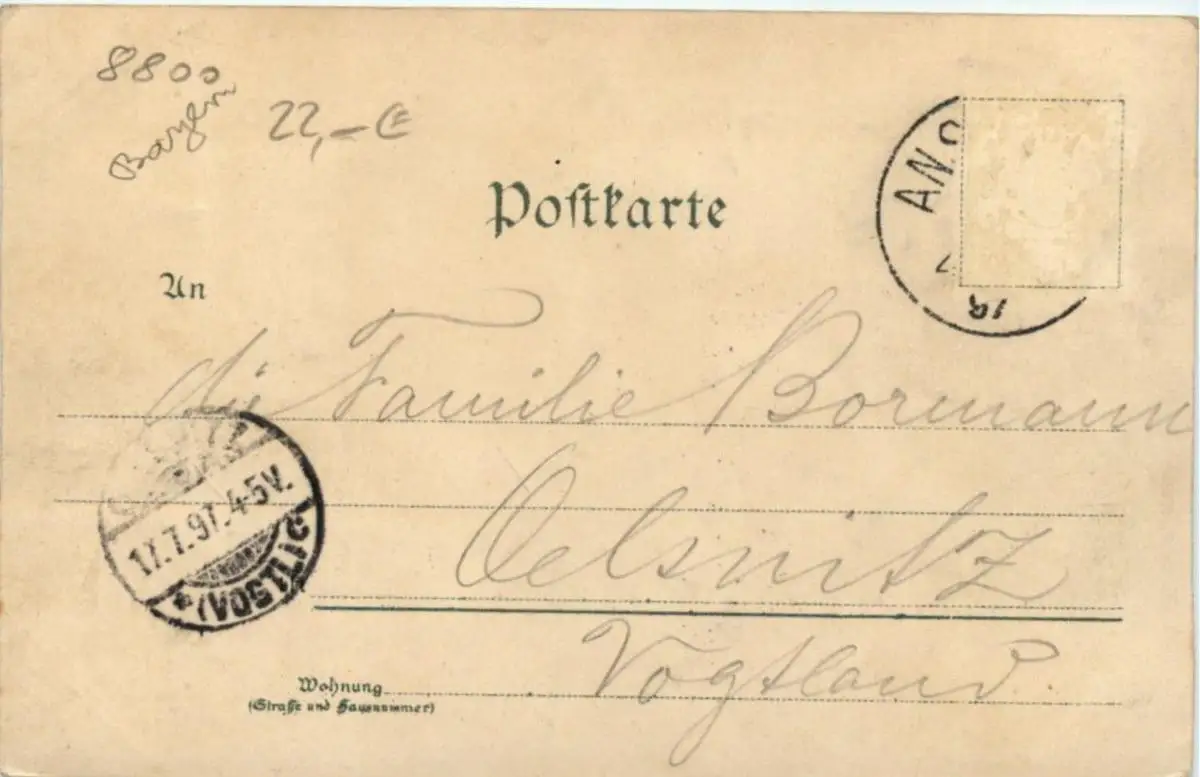 8800
Bayern
22,- €
Postkarte
ANS
An
die Familie Bormann
17.7.97.4-5V.
Oelsnitz
(VOGTL
Vogtland.
Wohnung
(Straße und Hausnummer)